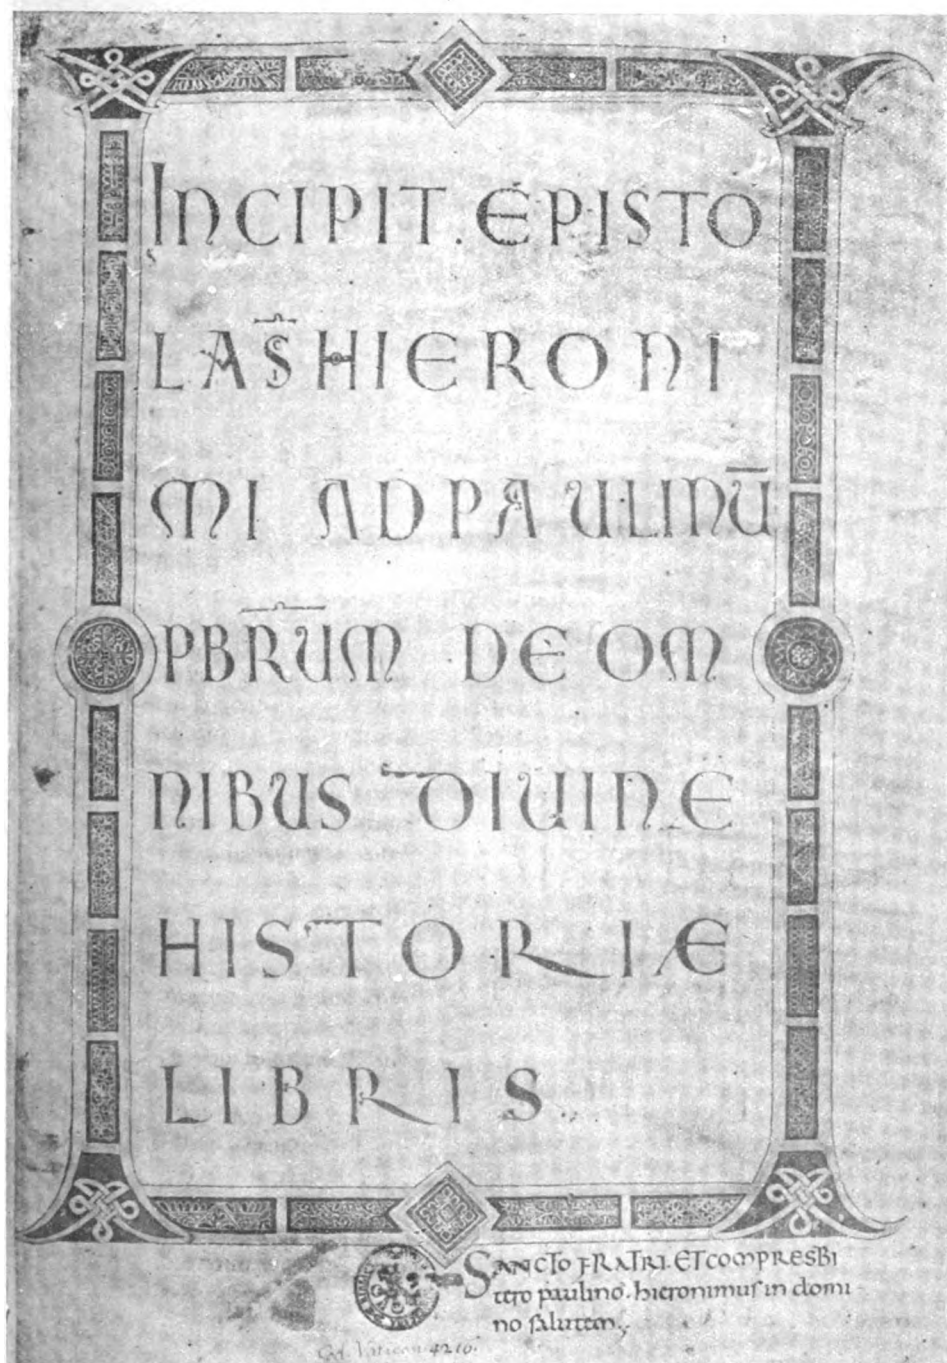 INCIPIT. EPISTO
LA S̄ HIERONI
MI AD PAULINŪ
PB̄R̄ŪM DE OM
NIBUS DIUINE
HISTORIÆ
LIBRIS.
SANCTO FRATRI. ET COMPRESBI
tero paulino. hieronimus in domi
no salutem.
Cod. Vatican 4216.